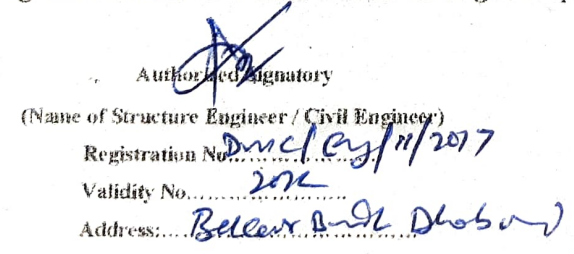 Authorized Signatory
(Name of Structure Engineer / Civil Engineer)
Registration No. DMC/Eng/11/2017
Validity No.
Address: